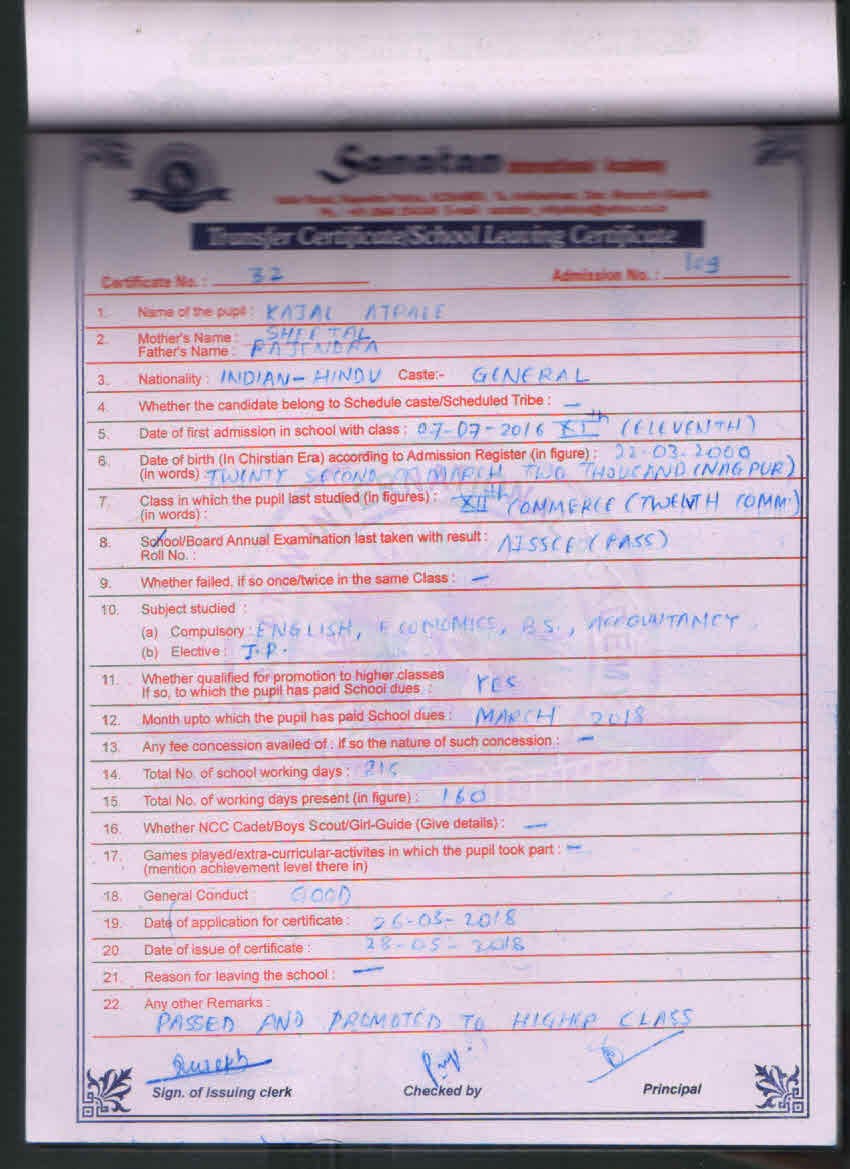 Sanatan International Academy
Transfer Certificate/School Leaving Certificate
Certificate No. : 32 Admission No. : 109
1. Name of the pupil : KAJAL ATPALE
2. Mother's Name : SHEETAL
Father's Name : RAJENDRA
3. Nationality : INDIAN-HINDU Caste:- GENERAL
4. Whether the candidate belong to Schedule caste/Scheduled Tribe : —
5. Date of first admission in school with class : 07-07-2016 XIth (ELEVENTH)
6. Date of birth (In Chirstian Era) according to Admission Register (in figure) : 22-03-2000
(in words) TWENTY SECOND MARCH TWO THOUSAND (NAGPUR)
7. Class in which the pupil last studied (in figures) : XIIth COMMERCE (TWELVTH COMM.)
(in words) :
8. School/Board Annual Examination last taken with result : AISSCE (PASS)
Roll No. :
9. Whether failed, if so once/twice in the same Class : —
10. Subject studied :
(a) Compulsory : ENGLISH, ECONOMICS, B.S., ACCOUNTANCY
(b) Elective : I.P.
11. Whether qualified for promotion to higher classes
If so, to which the pupil has paid School dues : YES
12. Month upto which the pupil has paid School dues : MARCH 2018
13. Any fee concession availed of : If so the nature of such concession : —
14. Total No. of school working days : 215
15. Total No. of working days present (in figure) : 160
16. Whether NCC Cadet/Boys Scout/Girl-Guide (Give details) : —
17. Games played/extra-curricular-activites in which the pupil took part : —
(mention achievement level there in)
18. General Conduct : GOOD
19. Date of application for certificate : 26-05-2018
20 Date of issue of certificate : 28-05-2018
21. Reason for leaving the school : —
22. Any other Remarks :
PASSED AND PROMOTED TO HIGHER CLASS
Sign. of Issuing clerk Checked by Principal